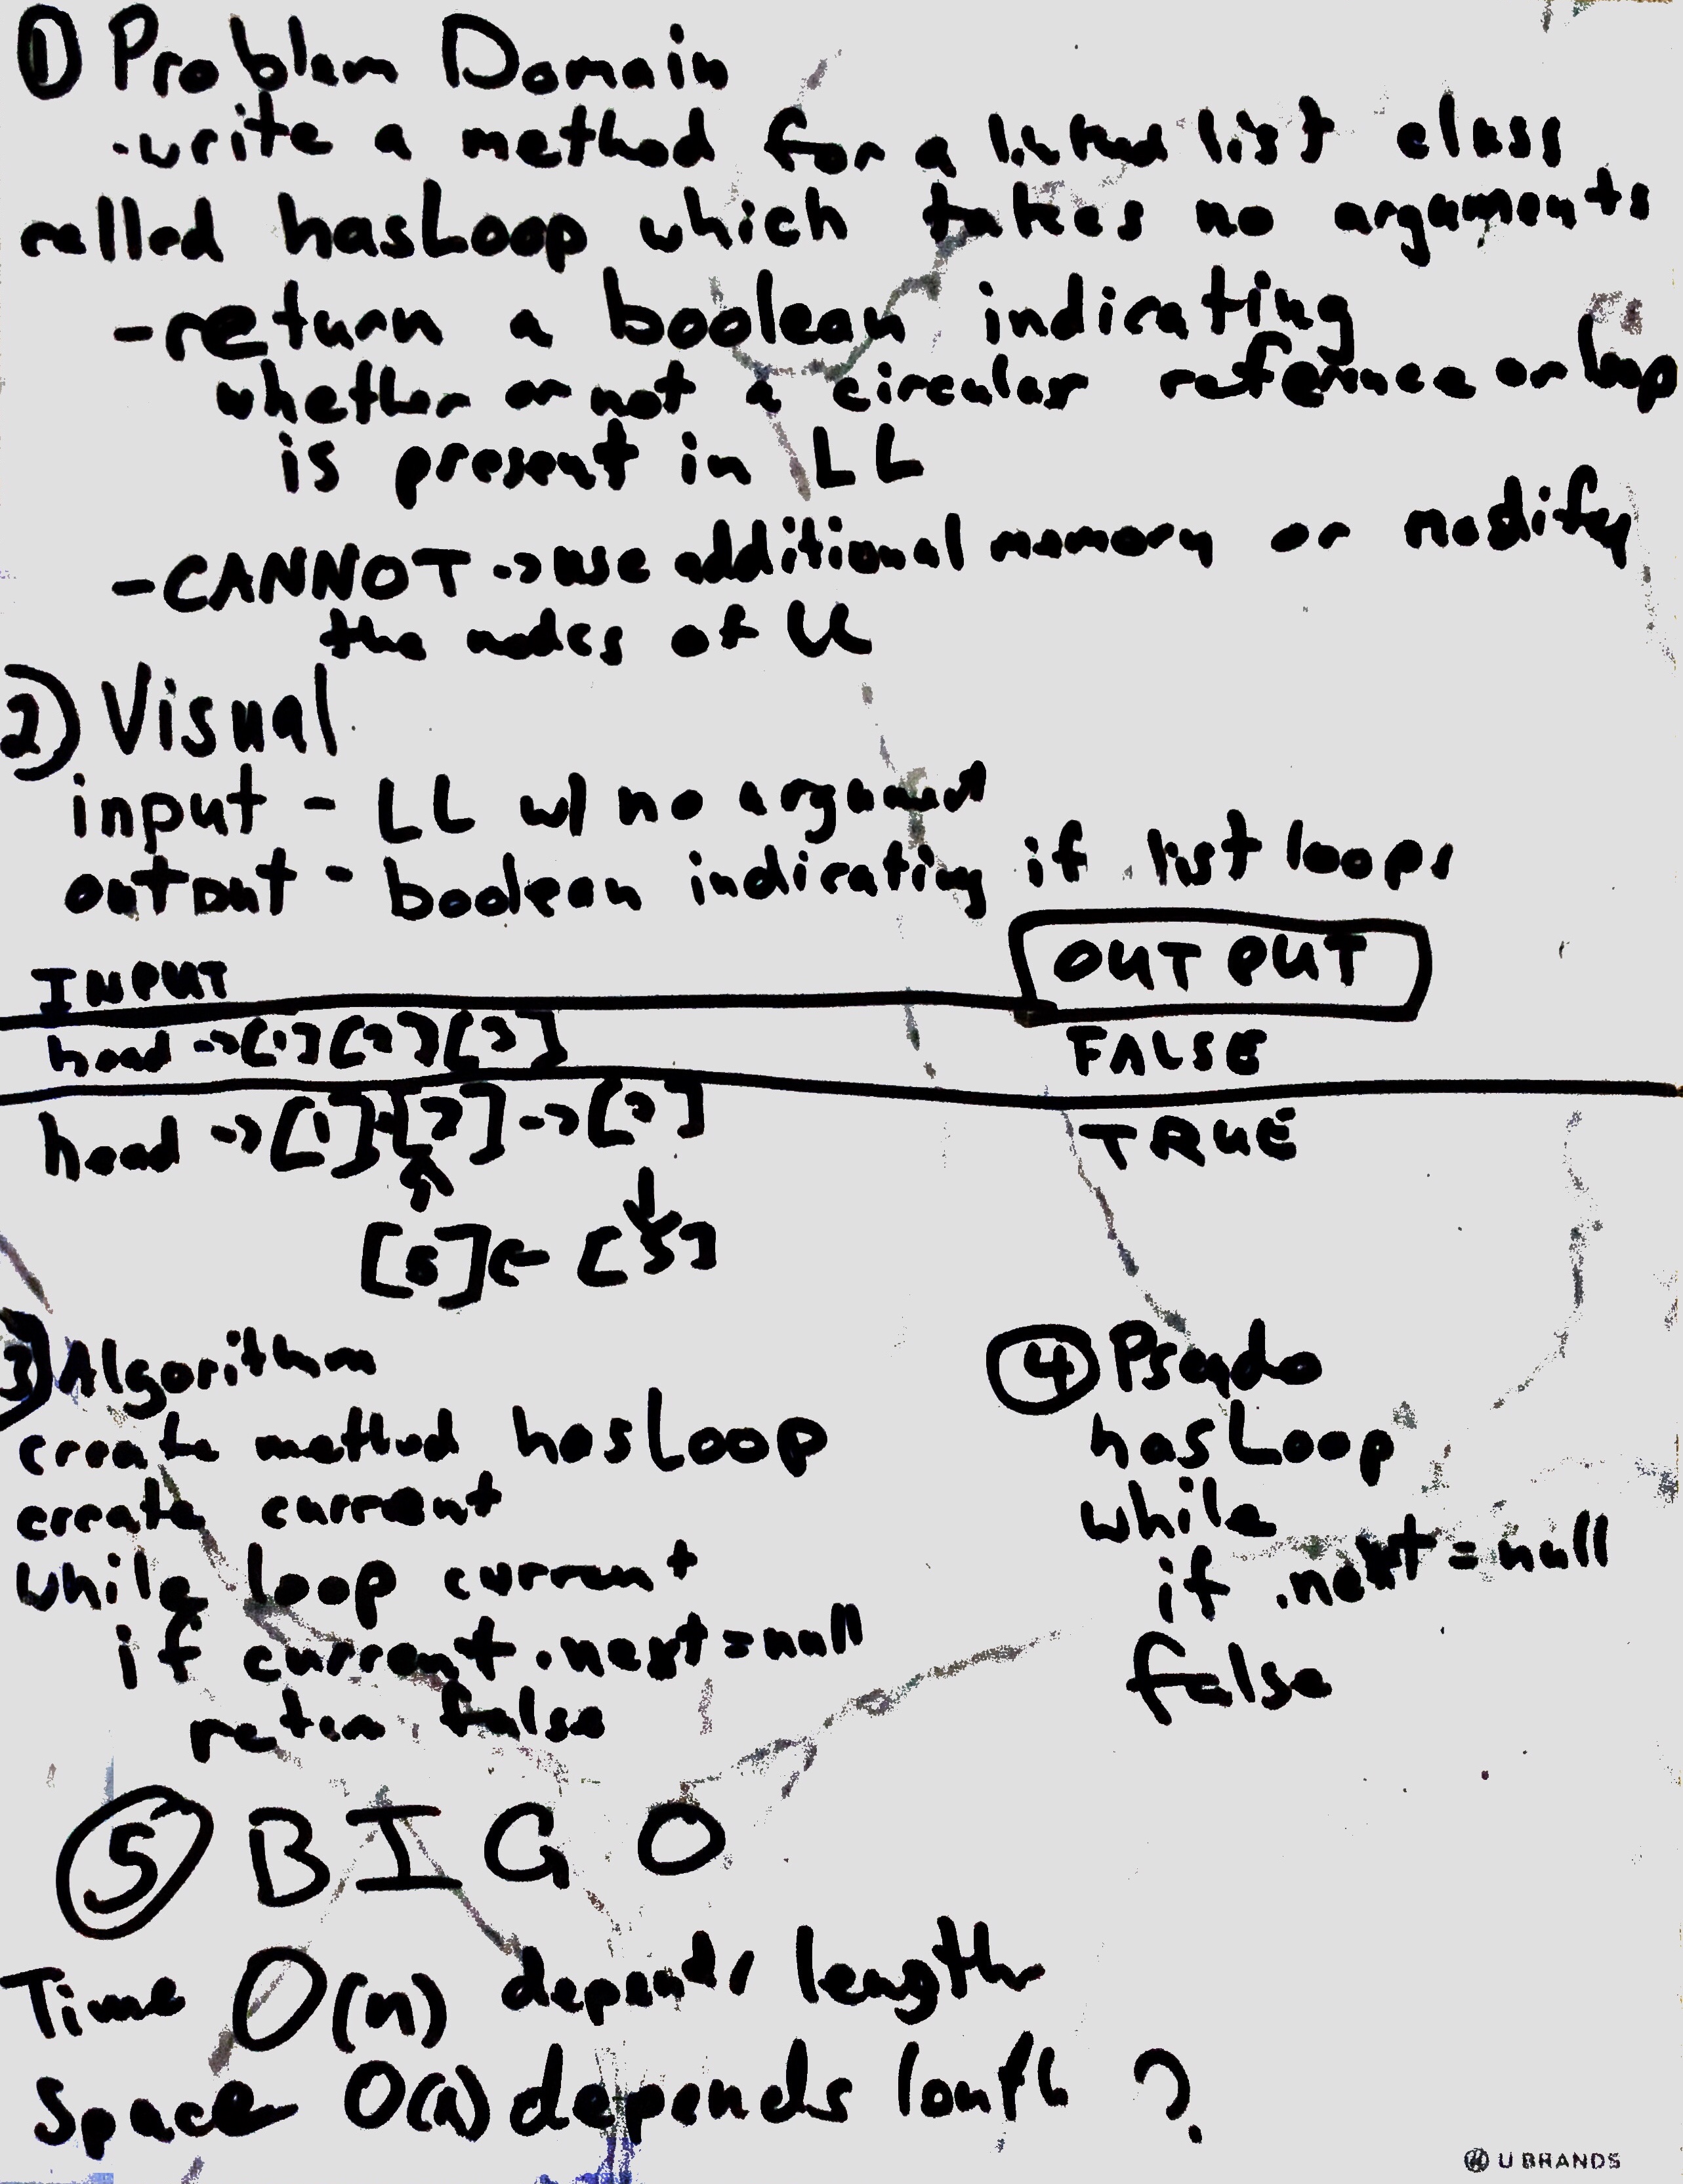 ① Problem Domain
-write a method for a linked list class
called hasLoop which takes no arguments
-return a boolean indicating
whether or not a circular reference or loop
is present in LL
-CANNOT -> use additional memory or modify
the nodes of LL
2) Visual
input - LL w/ no argument
output - boolean indicating if list loops
INPUT OUTPUT
head -> [1] [2] [3] FALSE
head -> [1] [2] -> [3] TRUE
[5] <-
3) Algorithm
create method hasLoop
create current
while loop current
if current.next = null
return false
④ Pseudo
hasLoop
while
if .next = null
false
⑤ BIG O
Time O(n) depends length
Space O(n) depends length ?
U BRANDS